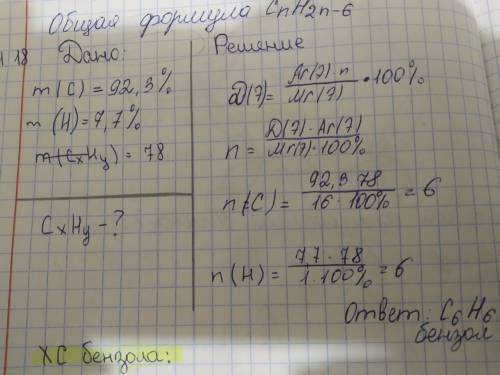 Общая формула CnH2n-6
18 Дано:
m(C) = 92,3%
m(H) = 7,7%
m(CxHy) = 78
CxHy - ?
Решение
D(?) = Ar(?)·n / Mr(?) · 100%
n = D(?)·Ar(?) / Mr(?)·100%
n(C) = 92,3 78 / 16·100% = 6
n(H) = 7,7·78 / 1·100% = 6
Ответ: C6H6
бензол
ХС бензола: